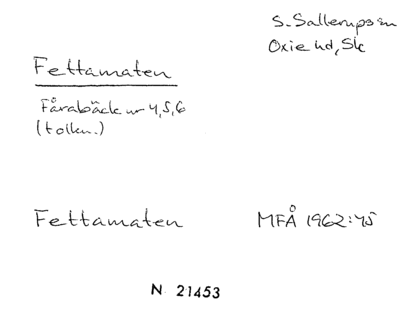 S. Sallerups sn
Oxie hd, Sk
Fettamaten
Fårabäck nr 4,5,6
(tolkn.)
Fettamaten MFÅ 1962:45
N 21453